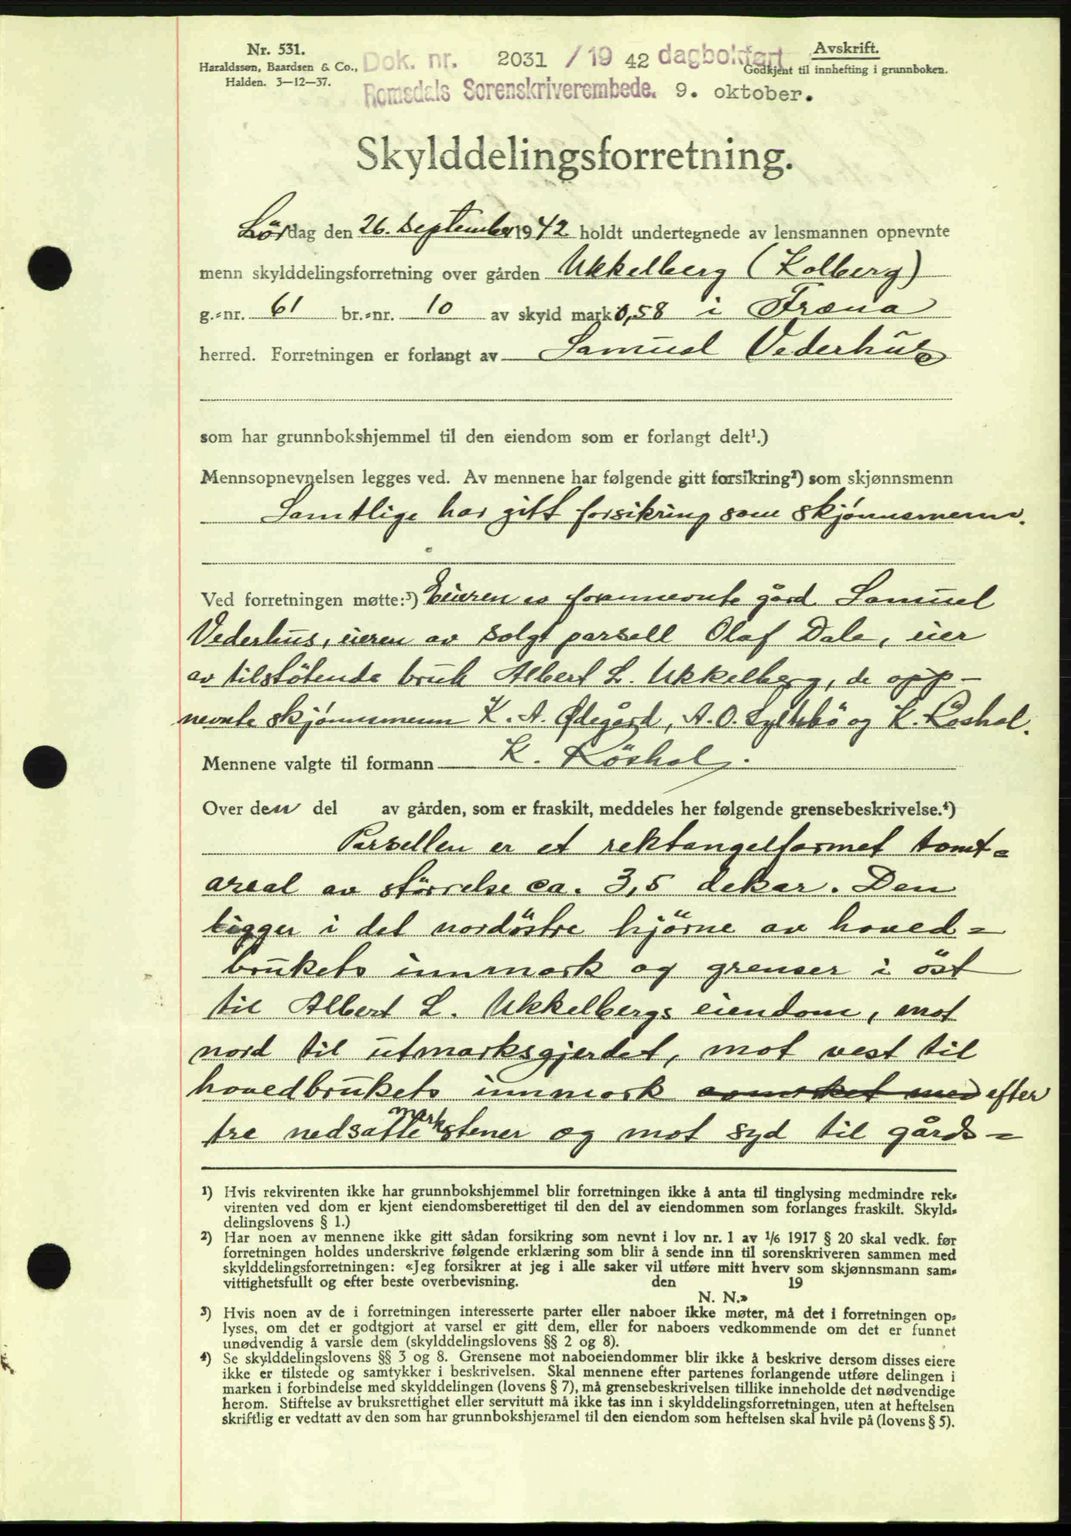 Nr. 531.
Haraldssøn, Baardsen & Co.,
Halden. 3-12-37.
Dok. nr. 2031 /19 42 dagbokført
Romsdals Sorenskriverembede. 9. oktober.
Avskrift.
Godkjent til innhefting i grunnboken.
Skylddelingsforretning.
Lördag den 26. september 1942 holdt undertegnede av lensmannen opnevnte
menn skylddelingsforretning over gården Ukkelberg (Kolberg)
g.-nr. 61 br.-nr. 10 av skyld mark 0,58 i Fræna
herred. Forretningen er forlangt av Samuel Vederhus
som har grunnbokshjemmel til den eiendom som er forlangt delt¹.)
Mennsopnevnelsen legges ved. Av mennene har følgende gitt forsikring²) som skjønnsmenn
Samtlige har gitt forsikring som skjönnsmenn.
Ved forretningen møtte:³) Eieren av forannevnte gård Samuel
Vederhus, eieren av solgt parsell Olaf Dale, eier
av tilstötende bruk Albert L. Ukkelberg, de opp-
nevnte skjönnsmenn K. A. Ødegård, A. O. Sylthbö og K. Röshol.
Mennene valgte til formann K. Röshol.
Over den del av gården, som er fraskilt, meddeles her følgende grensebeskrivelse.⁴)
Parsellen er et rektangelformet tomt=
areal av störrelse ca. 3,5 dekar. Den
ligger i det nordöstre hjörne av hoved=
brukets innmark og grenser i öst
til Albert L. Ukkelbergs eiendom, mot
nord til utmarksgjerdet, mot vest til
hovedbrukets innmark avmerket med efter
tre nedsatte merkstener og mot syd til gårds=
¹) Hvis rekvirenten ikke har grunnbokshjemmel blir forretningen ikke å anta til tinglysing medmindre rek-
virenten ved dom er kjent eiendomsberettiget til den del av eiendommen som forlanges fraskilt. Skyld-
delingslovens § 1.)
²) Har noen av mennene ikke gitt sådan forsikring som nevnt i lov nr. 1 av 1/6 1917 § 20 skal vedk. før
forretningen holdes underskrive følgende erklæring som blir å sende inn til sorenskriveren sammen med
skylddelingsforretningen: «Jeg forsikrer at jeg i alle saker vil utføre mitt hverv som skjønnsmann sam-
vittighetsfullt og efter beste overbevisning. den 19
N. N.»
³) Hvis noen av de i forretningen interesserte parter eller naboer ikke møter, må det i forretningen op-
lyses, om det er godtgjort at varsel er gitt dem, eller for naboers vedkommende om det er funnet
unødvendig å varsle dem (skylddelingslovens §§ 2 og 8).
⁴) Se skylddelingslovens §§ 3 og 8. Grensene mot naboeiendommer blir ikke å beskrive dersom disses eiere
ikke er tilstede og samtykker i beskrivelsen. Skal mennene efter partenes forlangende utføre delingen i
marken i forbindelse med skylddelingen (lovens § 7), må grensebeskrivelsen tillike inneholde det nødvendige
herom. Stiftelse av bruksrettighet eller servitutt må ikke tas inn i skylddelingsforretningen, uten at heftelsen
skriftlig er vedtatt av den som har grunnbokshjemmel til den eiendom som heftelsen skal hvile på (lovens § 5).